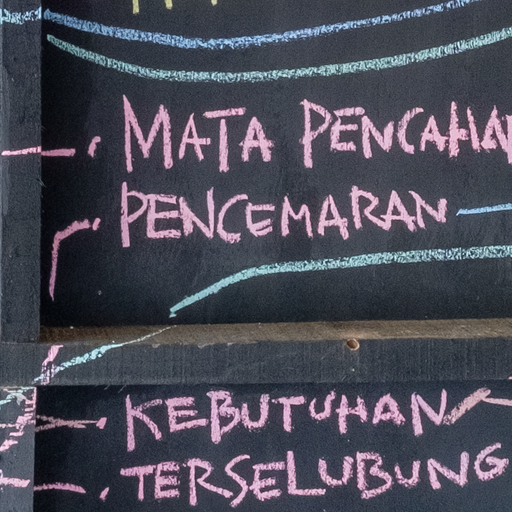 MATA PENCAHA
PENCEMARAN
KEBUTUHAN
TERSELUBUNG